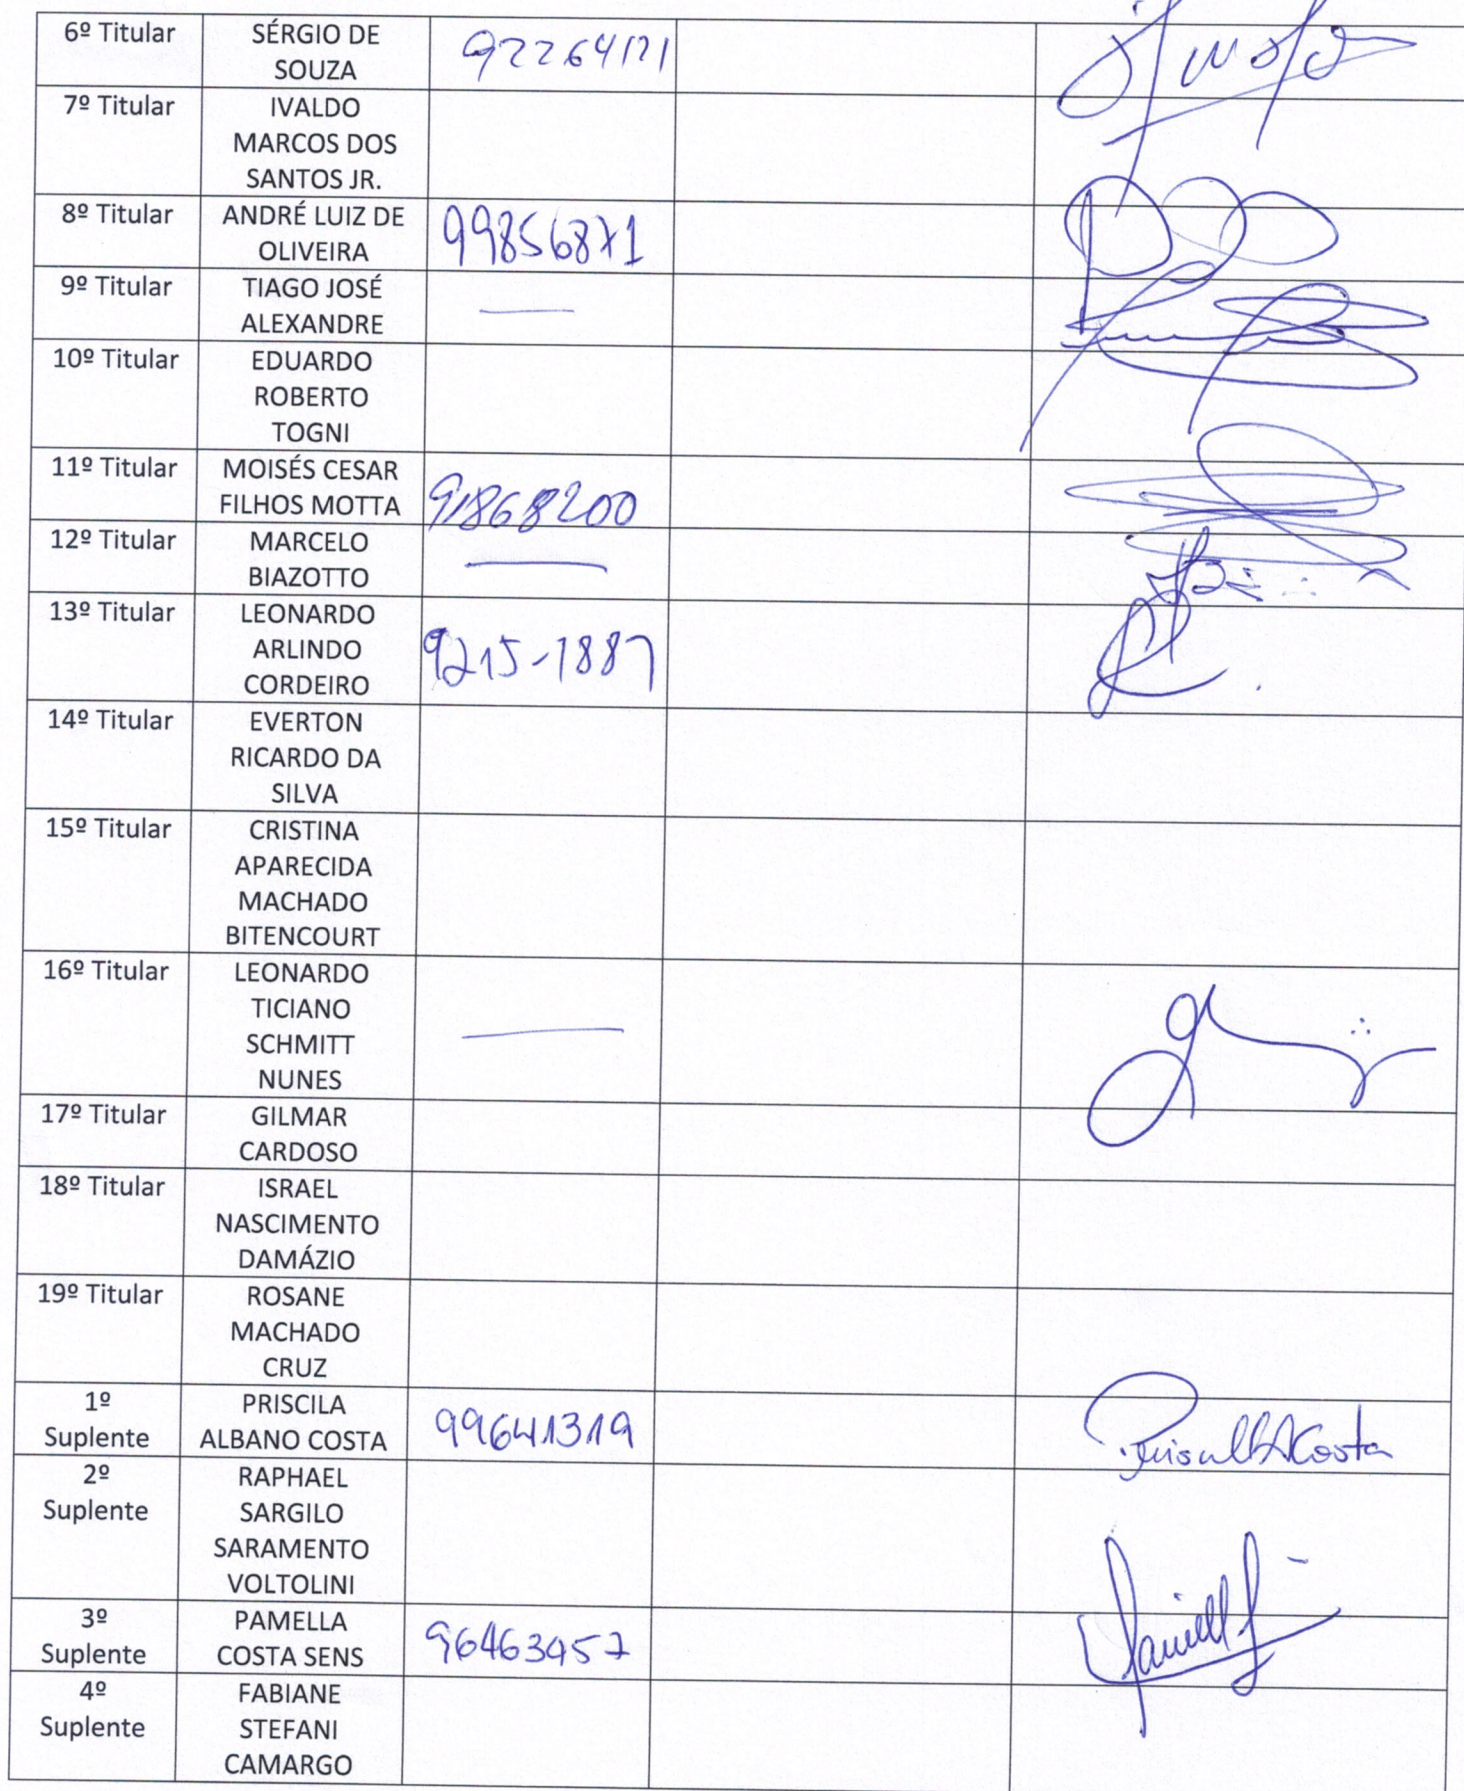 6º Titular SÉRGIO DE 92264121
SOUZA
7º Titular IVALDO
MARCOS DOS
SANTOS JR.
8º Titular ANDRÉ LUIZ DE 99856871
OLIVEIRA
9º Titular TIAGO JOSÉ
ALEXANDRE —
10º Titular EDUARDO
ROBERTO
TOGNI
11º Titular MOISÉS CESAR
FILHOS MOTTA 91868200
12º Titular MARCELO
BIAZOTTO —
13º Titular LEONARDO
ARLINDO 9215-1887
CORDEIRO
14º Titular EVERTON
RICARDO DA
SILVA
15º Titular CRISTINA
APARECIDA
MACHADO
BITENCOURT
16º Titular LEONARDO
TICIANO
SCHMITT —
NUNES
17º Titular GILMAR
CARDOSO
18º Titular ISRAEL
NASCIMENTO
DAMÁZIO
19º Titular ROSANE
MACHADO
CRUZ
1º PRISCILA
Suplente ALBANO COSTA 99641319 Costa
2º RAPHAEL
Suplente SARGILO
SARAMENTO
VOLTOLINI
3º PAMELLA
Suplente COSTA SENS 96463457
4º FABIANE
Suplente STEFANI
CAMARGO